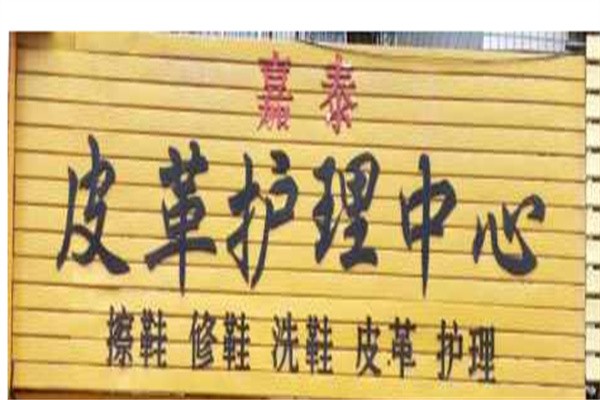 嘉泰
皮革护理中心
擦鞋 修鞋 洗鞋 皮革 护理